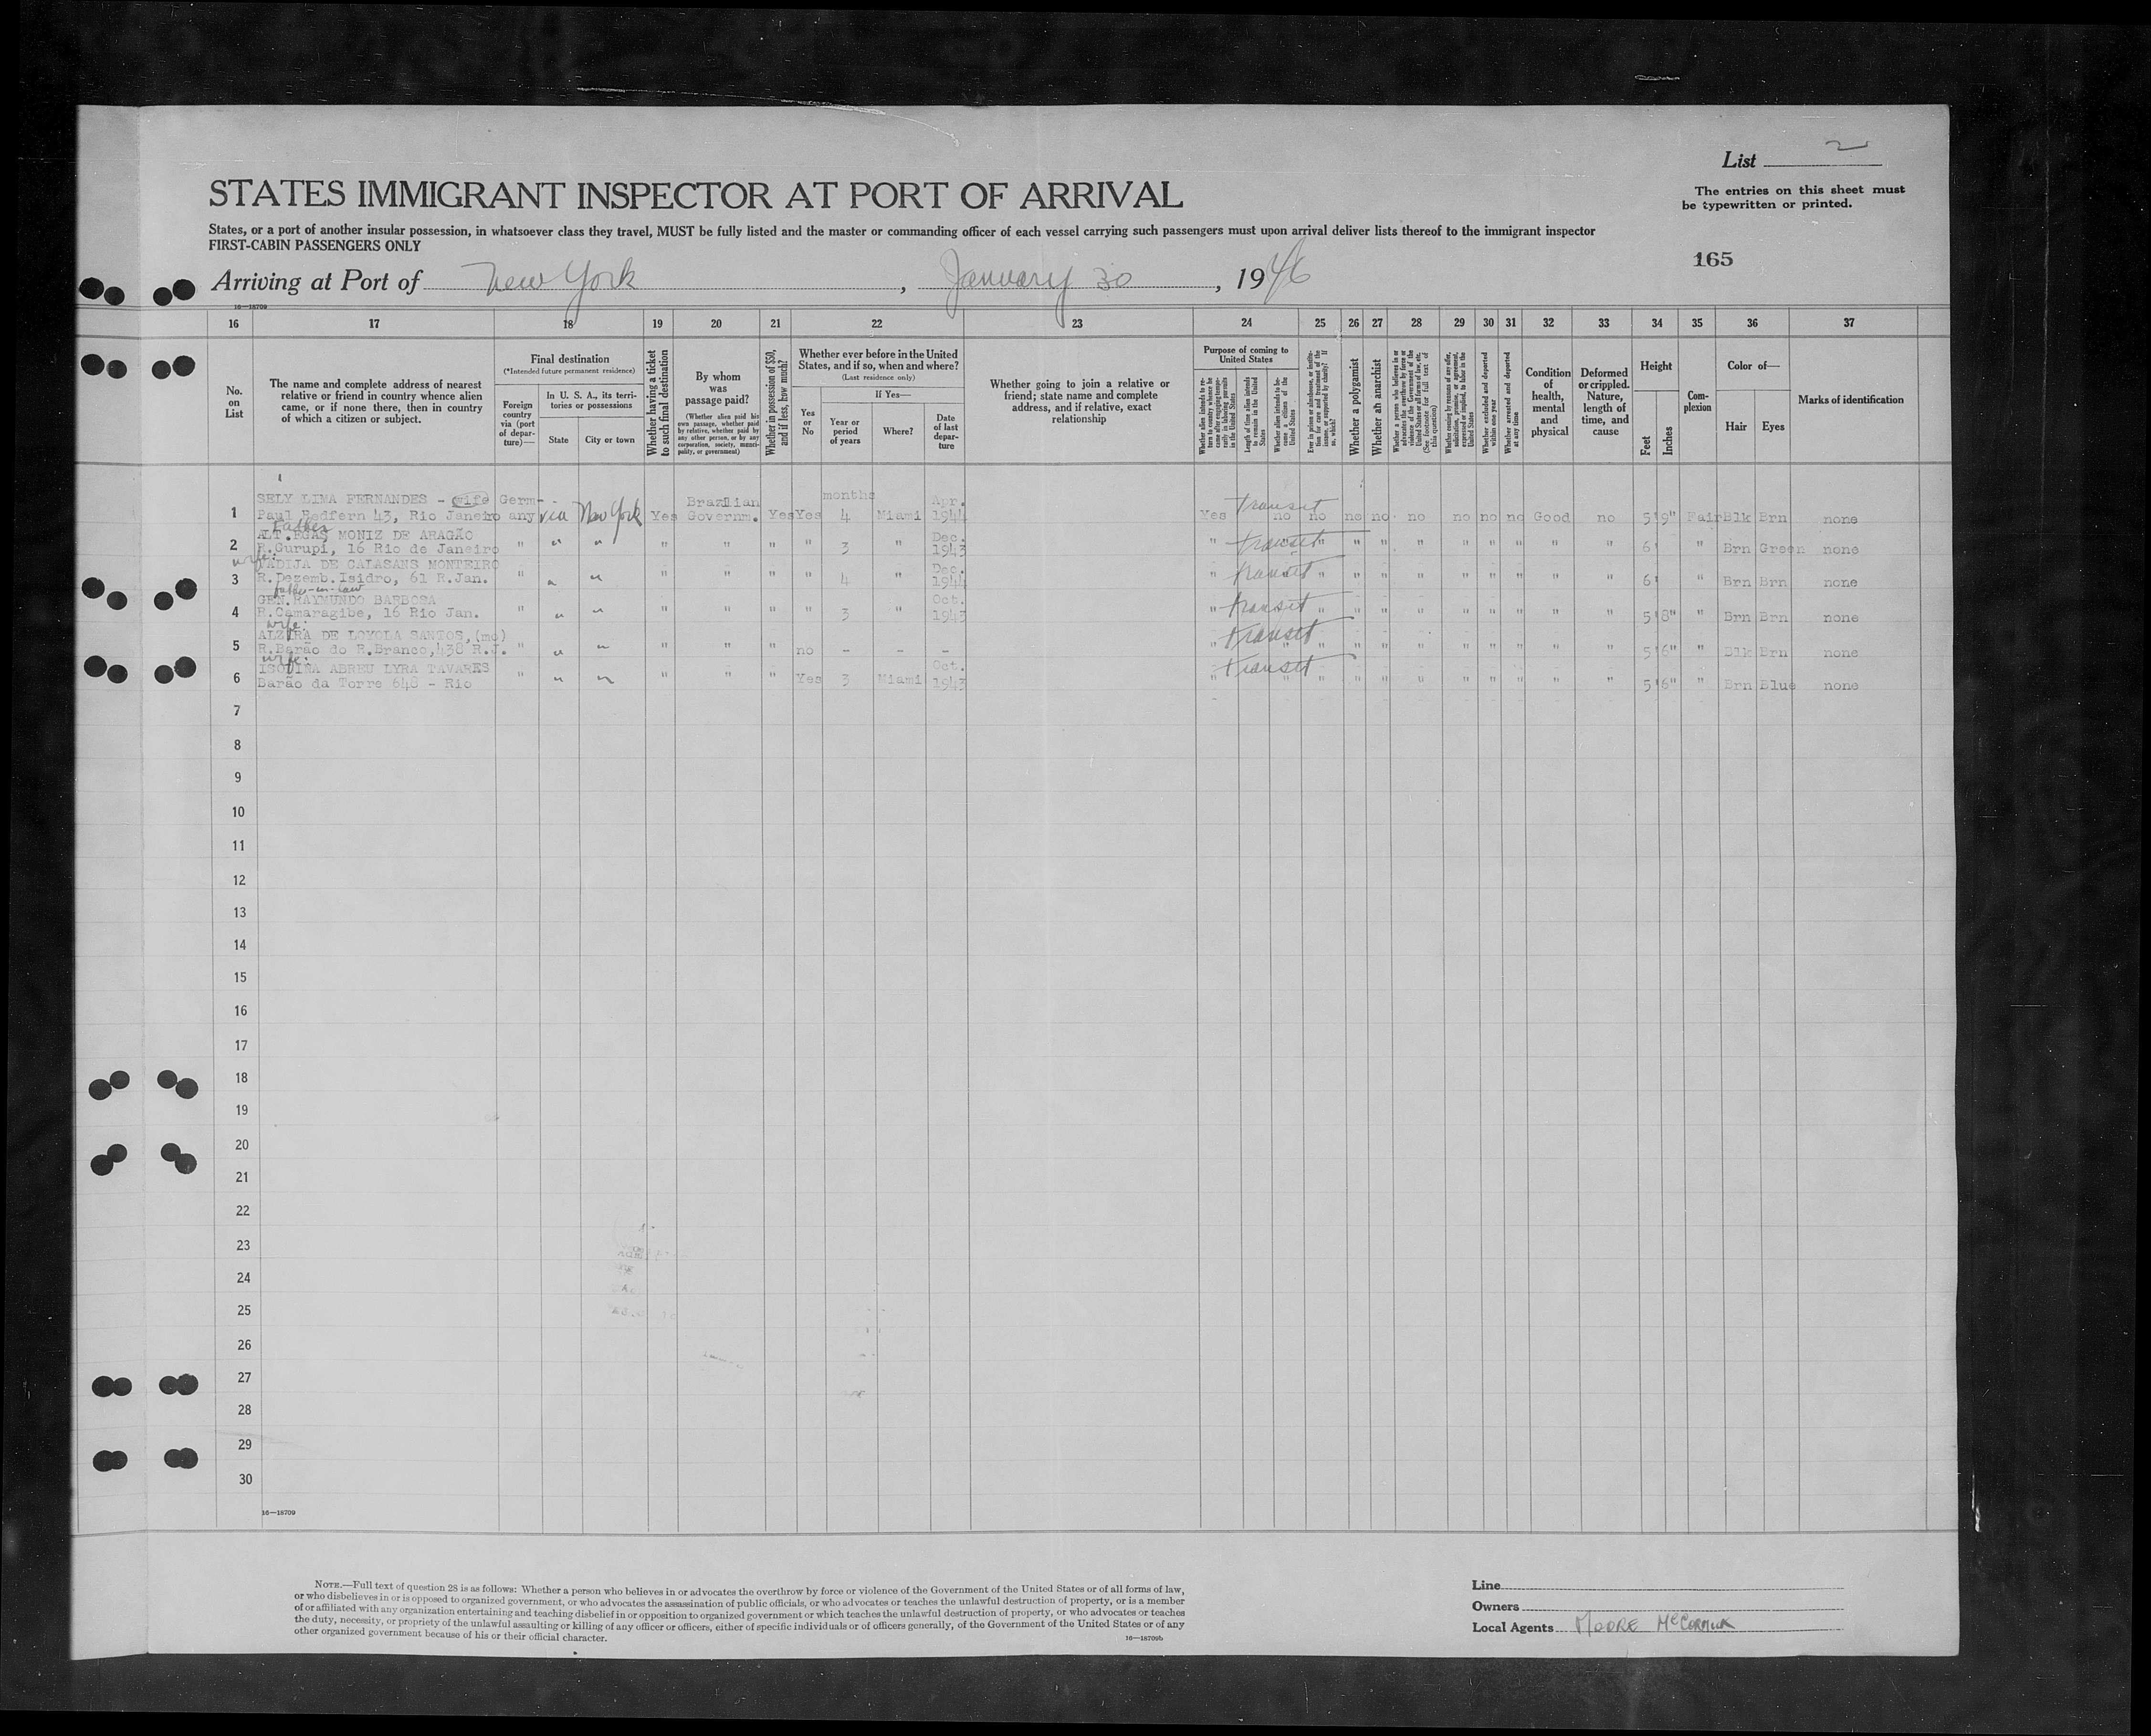 List 2
The entries on this sheet must
be typewritten or printed.
STATES IMMIGRANT INSPECTOR AT PORT OF ARRIVAL
States, or a port of another insular possession, in whatsoever class they travel, MUST be fully listed and the master or commanding officer of each vessel carrying such passengers must upon arrival deliver lists thereof to the immigrant inspector
FIRST-CABIN PASSENGERS ONLY
165
Arriving at Port of New York, January 30, 1946
16—18709
16 17 18 19 20 21 22 23 24 25 26 27 28 29 30 31 32 33 34 35 36 37
No.
on
List
The name and complete address of nearest
relative or friend in country whence alien
came, or if none there, then in country
of which a citizen or subject.
Final destination
(*Intended future permanent residence)
Foreign
country
via (port
of depar-
ture)—
In U. S. A., its terri-
tories or possessions
State
City or town
Whether having a ticket
to such final destination
By whom
was
passage paid?
(Whether alien paid his
own passage, whether paid
by relative, whether paid by
any other person, or by any
corporation, society, munici-
pality, or government)
Whether in possession of $50,
and if less, how much?
Whether ever before in the United
States, and if so, when and where?
(Last residence only)
Yes
or
No
If Yes—
Year or
period
of years
Where?
Date
of last
depar-
ture
Whether going to join a relative or
friend; state name and complete
address, and if relative, exact
relationship
Purpose of coming to
United States
Length of time alien intends
to remain in the United
States
Whether alien intends to be-
come a citizen of the
United States
Whether a polygamist
Whether an anarchist
Whether arrested and deported
at any time
Condition
of
health,
mental
and
physical
Deformed
or crippled.
Nature,
length of
time, and
cause
Height
Feet
Inches
Com-
plexion
Color of—
Hair
Eyes
Marks of identification
SELY LIMA FERNANDES - wife Germ- months Apr.
1 Paul Redfern 43, Rio Janeiro any via New York Yes Brazilian Governm. Yes Yes 4 Miami 1944 Yes transit no no no no no no no no Good no 5'9" Fair Blk Brn none
Father
ALT. EGAS MONIZ DE ARAGÃO Dec.
2 R.Gurupi, 16 Rio de Janeiro " " " " " " " 3 " 1943 " transit " " " " " " " " " " 6' " Brn Green none
wife:
NADIJA DE CALASANS MONTEIRO Dec.
3 R.Dezemb.Isidro, 61 R.Jan. " " " " " " " 4 " 1944 " transit " " " " " " " " " 6' " Brn Brn none
father-in-law
GEN.RAYMUNDO BARBOSA Oct.
4 R.Camaragibe, 16 Rio Jan. " " " " " " " 3 " 1943 " transit " " " " " " " " " 5'8" " Brn Brn none
wife:
ALZIRA DE LOYOLA SANTOS,(mo)
5 R.Barão do R.Branco,438 R.J. " " " " " " no - - - " transit " " " " " " " " " " 5'6" " Blk Brn none
wife:
ISOLINA ABREU LYRA TAVARES Oct.
6 Barão da Torre 648 - Rio " " " " " " Yes 3 Miami 1943 " transit " " " " " " " " " " 5'6" " Brn Blue none
7
8
9
10
11
12
13
14
15
16
17
18
19
20
21
22
23
24
25
26
27
28
29
30
16—18709
NOTE.—Full text of question 28 is as follows: Whether a person who believes in or advocates the overthrow by force or violence of the Government of the United States or of all forms of law,
or who disbelieves in or is opposed to organized government, or who advocates the assassination of public officials, or who advocates or teaches the unlawful destruction of property, or is a member
of or affiliated with any organization entertaining and teaching disbelief in or opposition to organized government or which teaches the unlawful destruction of property, or who advocates or teaches
the duty, necessity, or propriety of the unlawful assaulting or killing of any officer or officers, either of specific individuals or of officers generally, of the Government of the United States or of any
other organized government because of his or their official character.
16—18709b
Line
Owners
Local Agents MOORE McCORMICK